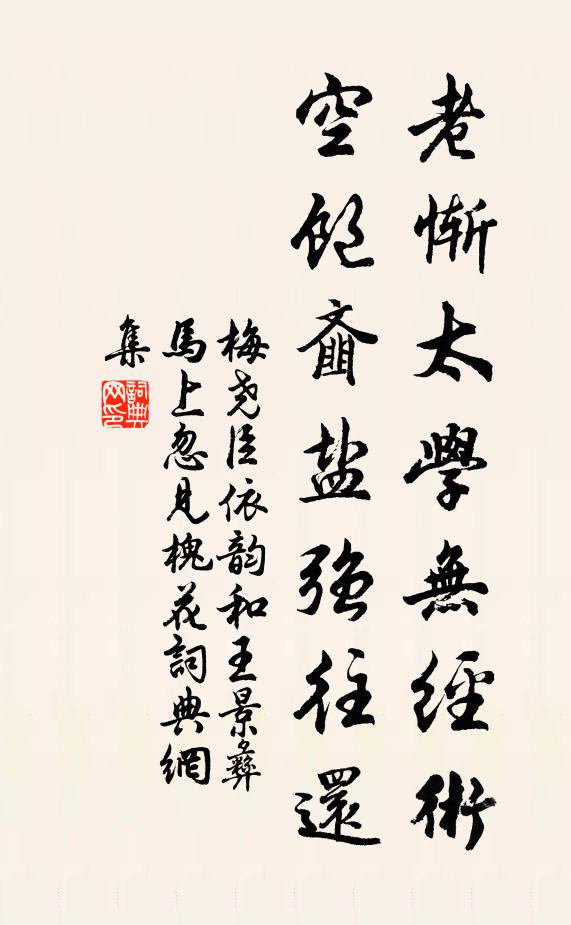 老慚太學無經術
空飽齑盐强往還
梅尧臣依韵和王景彝
馬上忽見槐花詞典網
集
詞典
网印